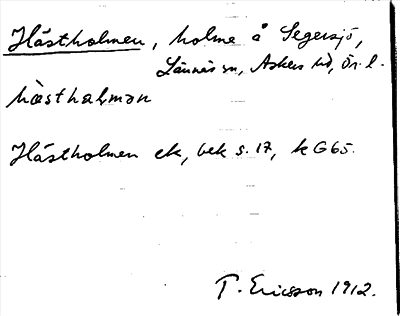 Hästholmen, holme å Segersjö,
Lännäs sn, Askers hd, Ör. l.
hæsthalmən
Hästholmen ek, bek s. 17, k G65.
T. Ericsson 1912.